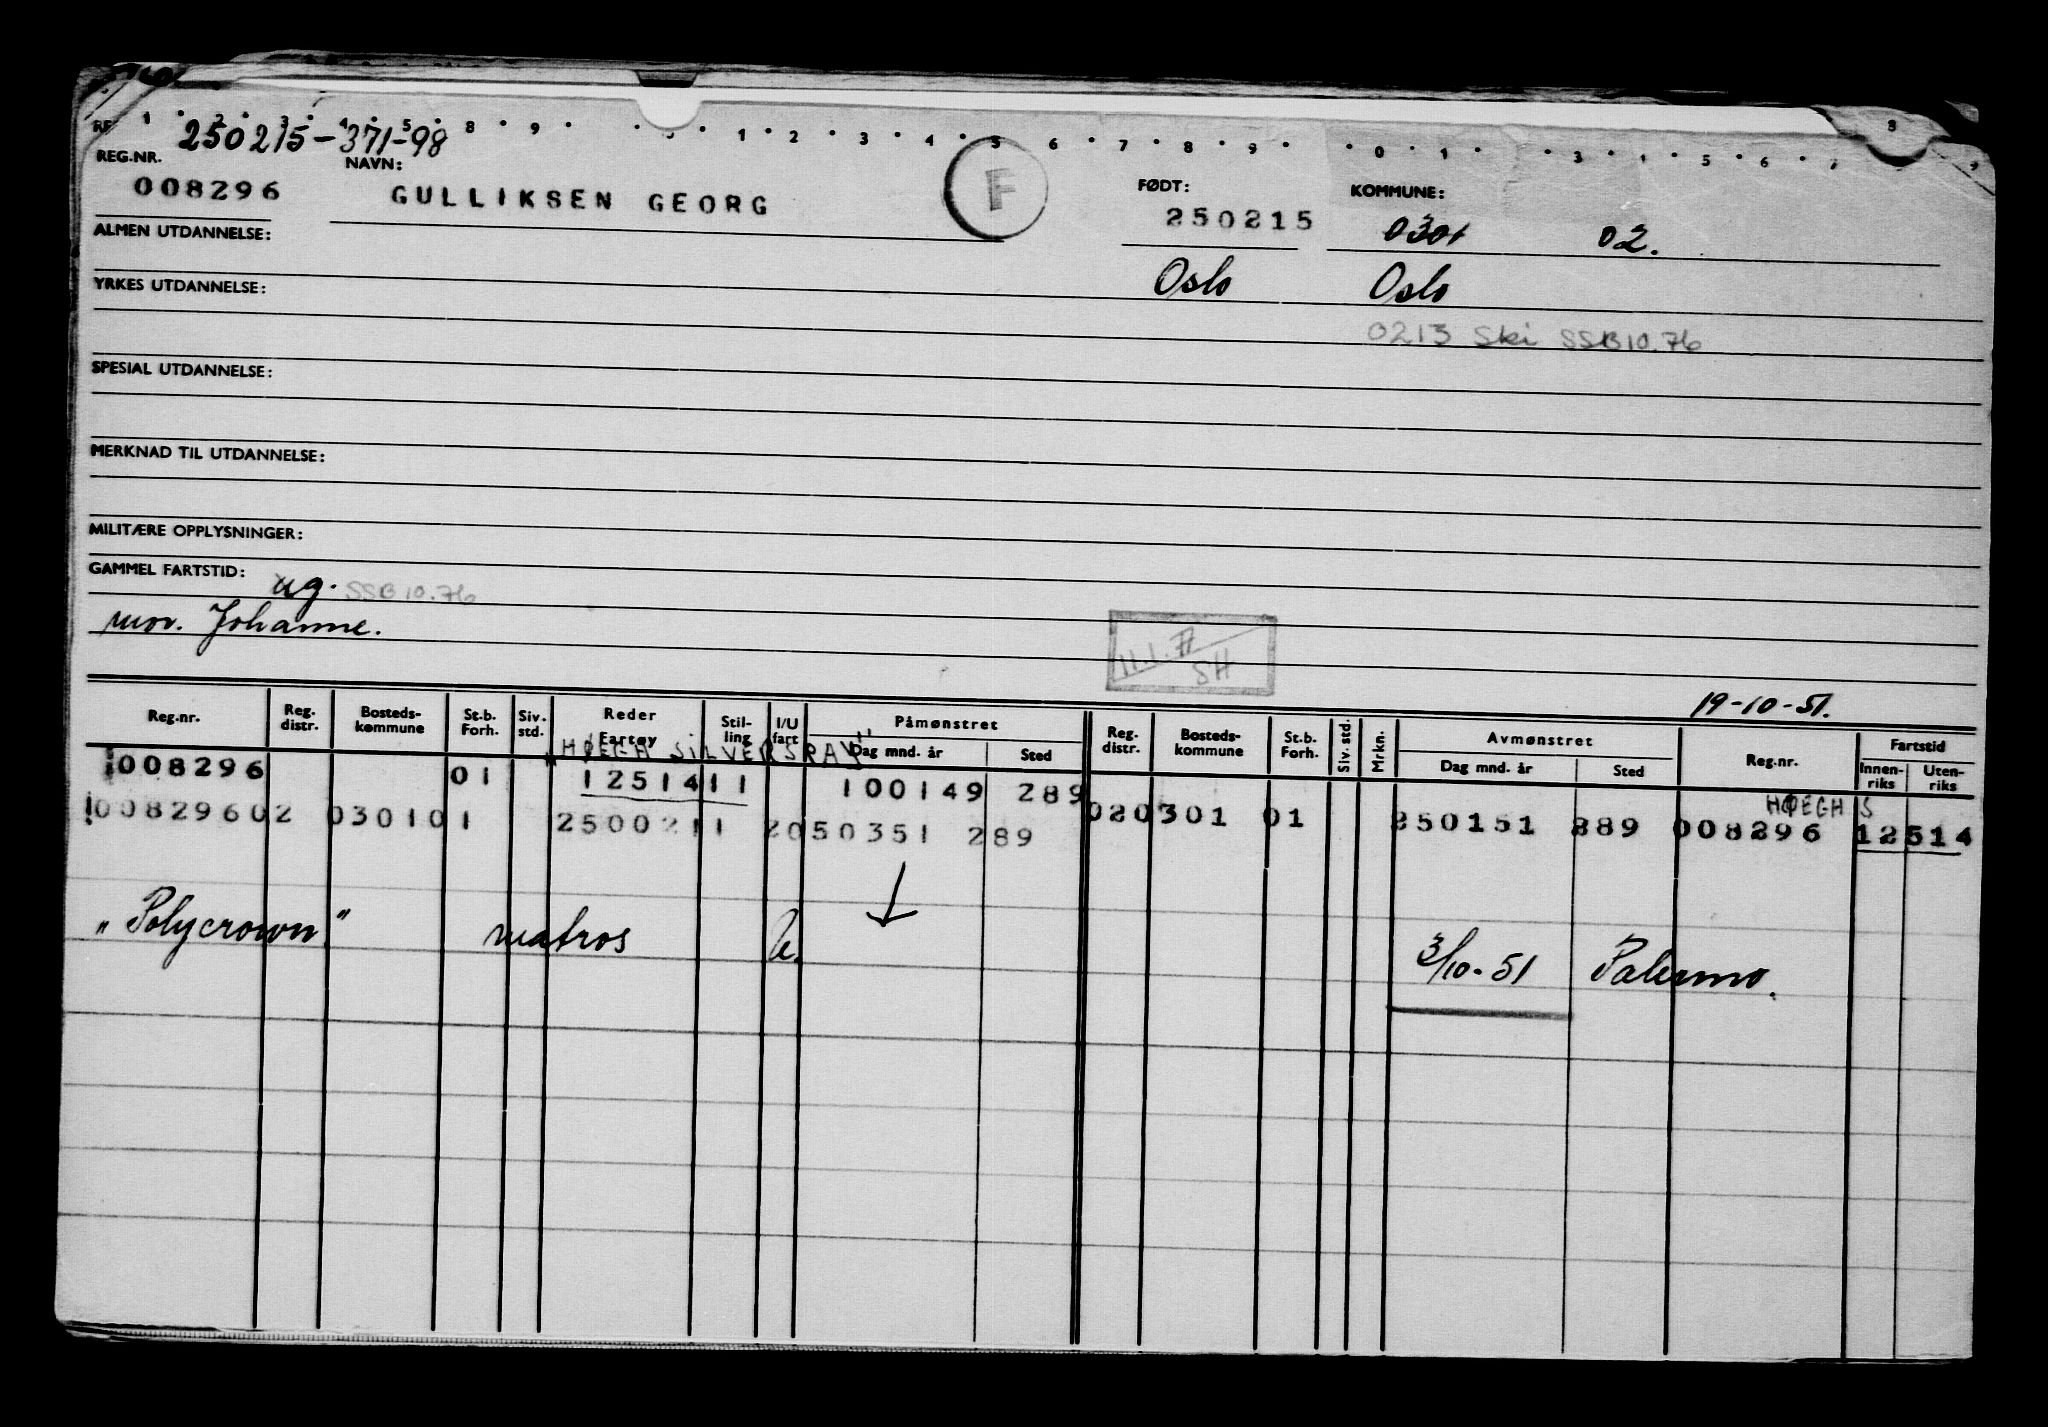 250215-371-98
REG.NR. NAVN: FØDT: KOMMUNE:
008296 GULLIKSEN GEORG F 250215 0301 02.
ALMEN UTDANNELSE:
Oslo Oslo
YRKES UTDANNELSE:
0213 Ski SSB 10.76
SPESIAL UTDANNELSE:
MERKNAD TIL UTDANNELSE:
MILITÆRE OPPLYSNINGER:
GAMMEL FARTSTID: ug. SSB 10.76
mor. Johanne.
11.1.77
SH
19-10-51.
Reg.nr. Reg. distr. Bosteds-kommune St.b. Forh. Siv. std. Reder Fartøy Stil-ling I/U fart Påmønstret Dag mnd. år Sted Reg. distr. Bosteds-kommune St.b. Forh. Siv. std. Mrkn. Avmønstret Dag mnd. år Sted Reg.nr. Fartstid Innen-riks Uten-riks
"HØEGH SILVERSRAY"
008296 01 1251411 100149 289
HØEGH S
020301 01 250151 289 008296 12514
00829602 030101 2500211 2050351 289
"Polycrown" matros U. 3/10-51 Palermo.